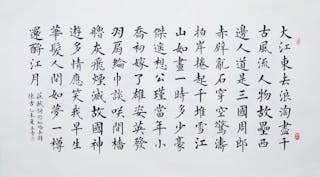 大江東去浪淘盡千
古風流人物故壘西
邊人道是三國周郎
赤壁亂石穿空驚濤
拍岸捲起千堆雪江
山如畫一時多少豪
傑遙想公瑾當年小
喬初嫁了雄姿英發
羽扇綸巾談咲間檣
艣灰飛煙滅故國神
遊多情應笑我早生
華髮人間如夢一樽
還酹江月